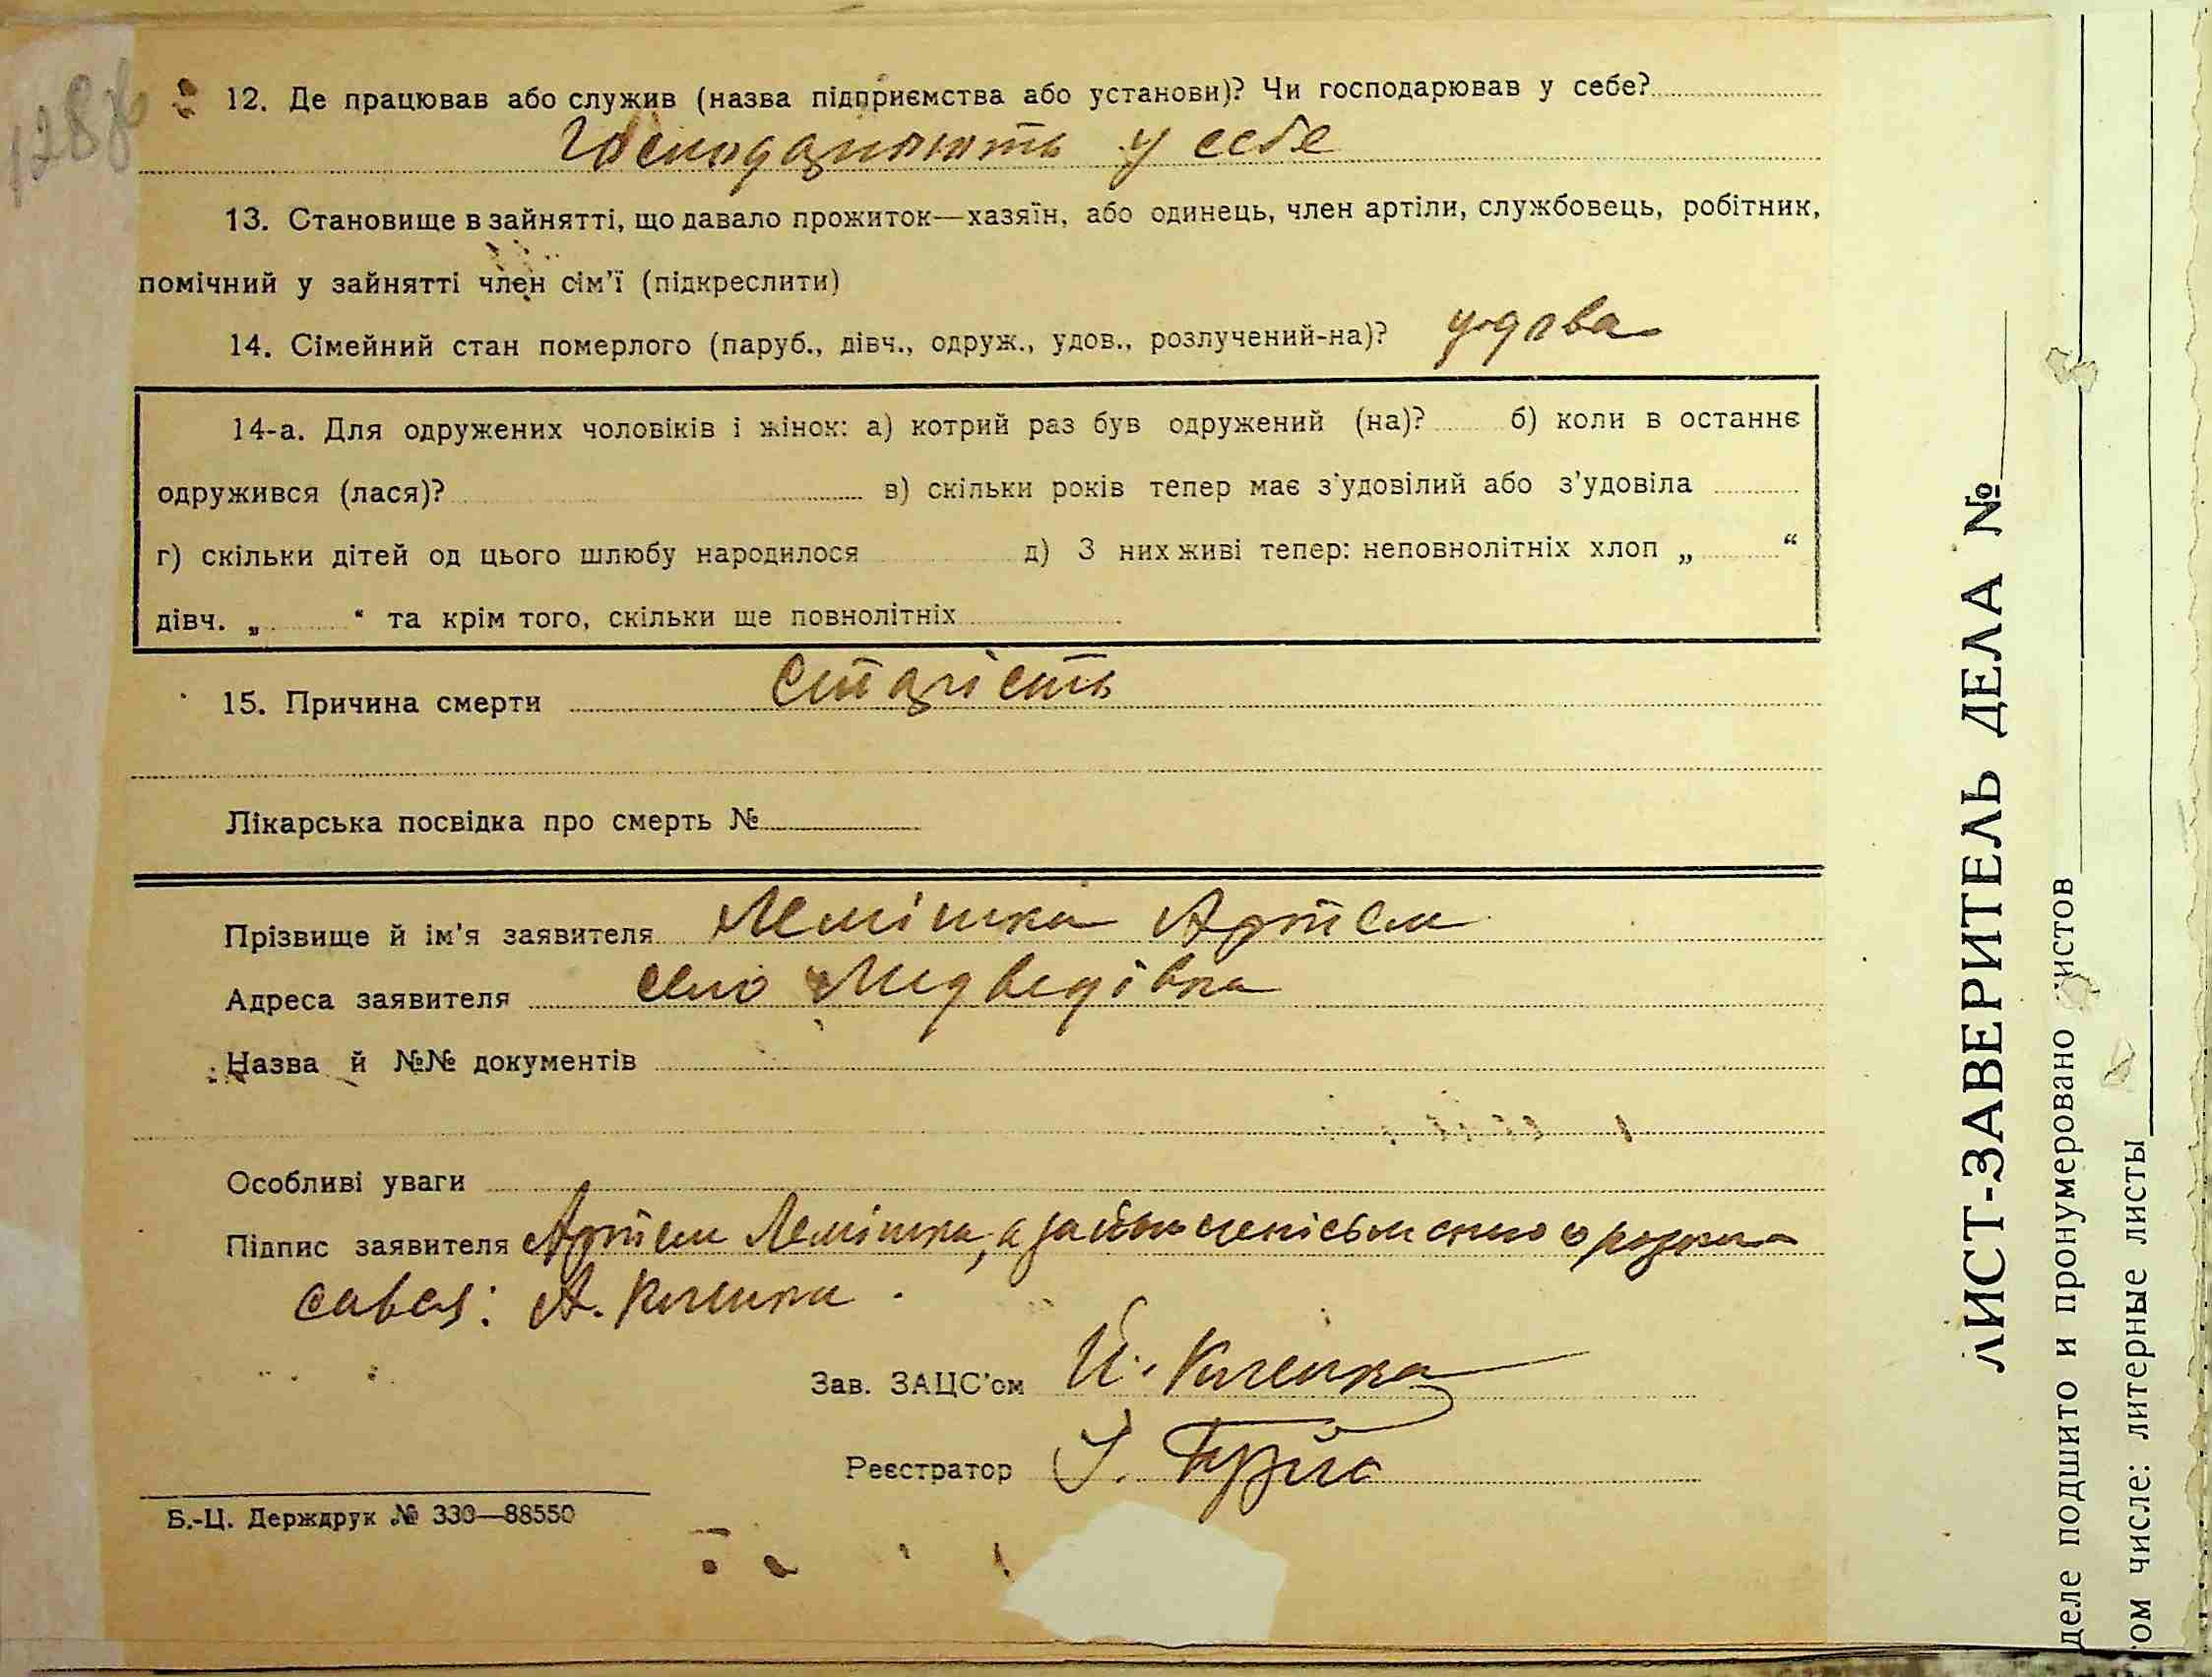 128
12. Де працював або служив (назва підприємства або установи)? Чи господарював у себе?
Господарюють у себе
13. Становище в зайнятті, що давало прожиток—хазяїн, або одинець, член артіли, службовець, робітник,
помічний у зайнятті член сім'ї (підкреслити)
14. Сімейний стан померлого (паруб., дівч., одруж., удов., розлучений-на)? удова
14-а. Для одружених чоловіків і жінок: а) котрий раз був одружений (на)? б) коли в останнє
одружився (лася)? в) скільки років тепер має з'удовілий або з'удовіла
г) скільки дітей од цього шлюбу народилося д) З них живі тепер: неповнолітніх хлоп „ “
дівч. „ “ та крім того, скільки ще повнолітніх
15. Причина смерти старість
Лікарська посвідка про смерть №
Прізвище й ім'я заявителя Лемішка Артем
Адреса заявителя село Медведівка
Назва й №№ документів
Особливі уваги
Підпис заявителя Артем Лемішка, а за його
савсь: А.
Зав. ЗАЦС'ом
Реєстратор
Б.-Ц. Держдрук № 330—88550
ЛИСТ-ЗАВЕРИТЕЛЬ ДЕЛА №
деле подшито и пронумеровано листов
ом числе: литерные листы